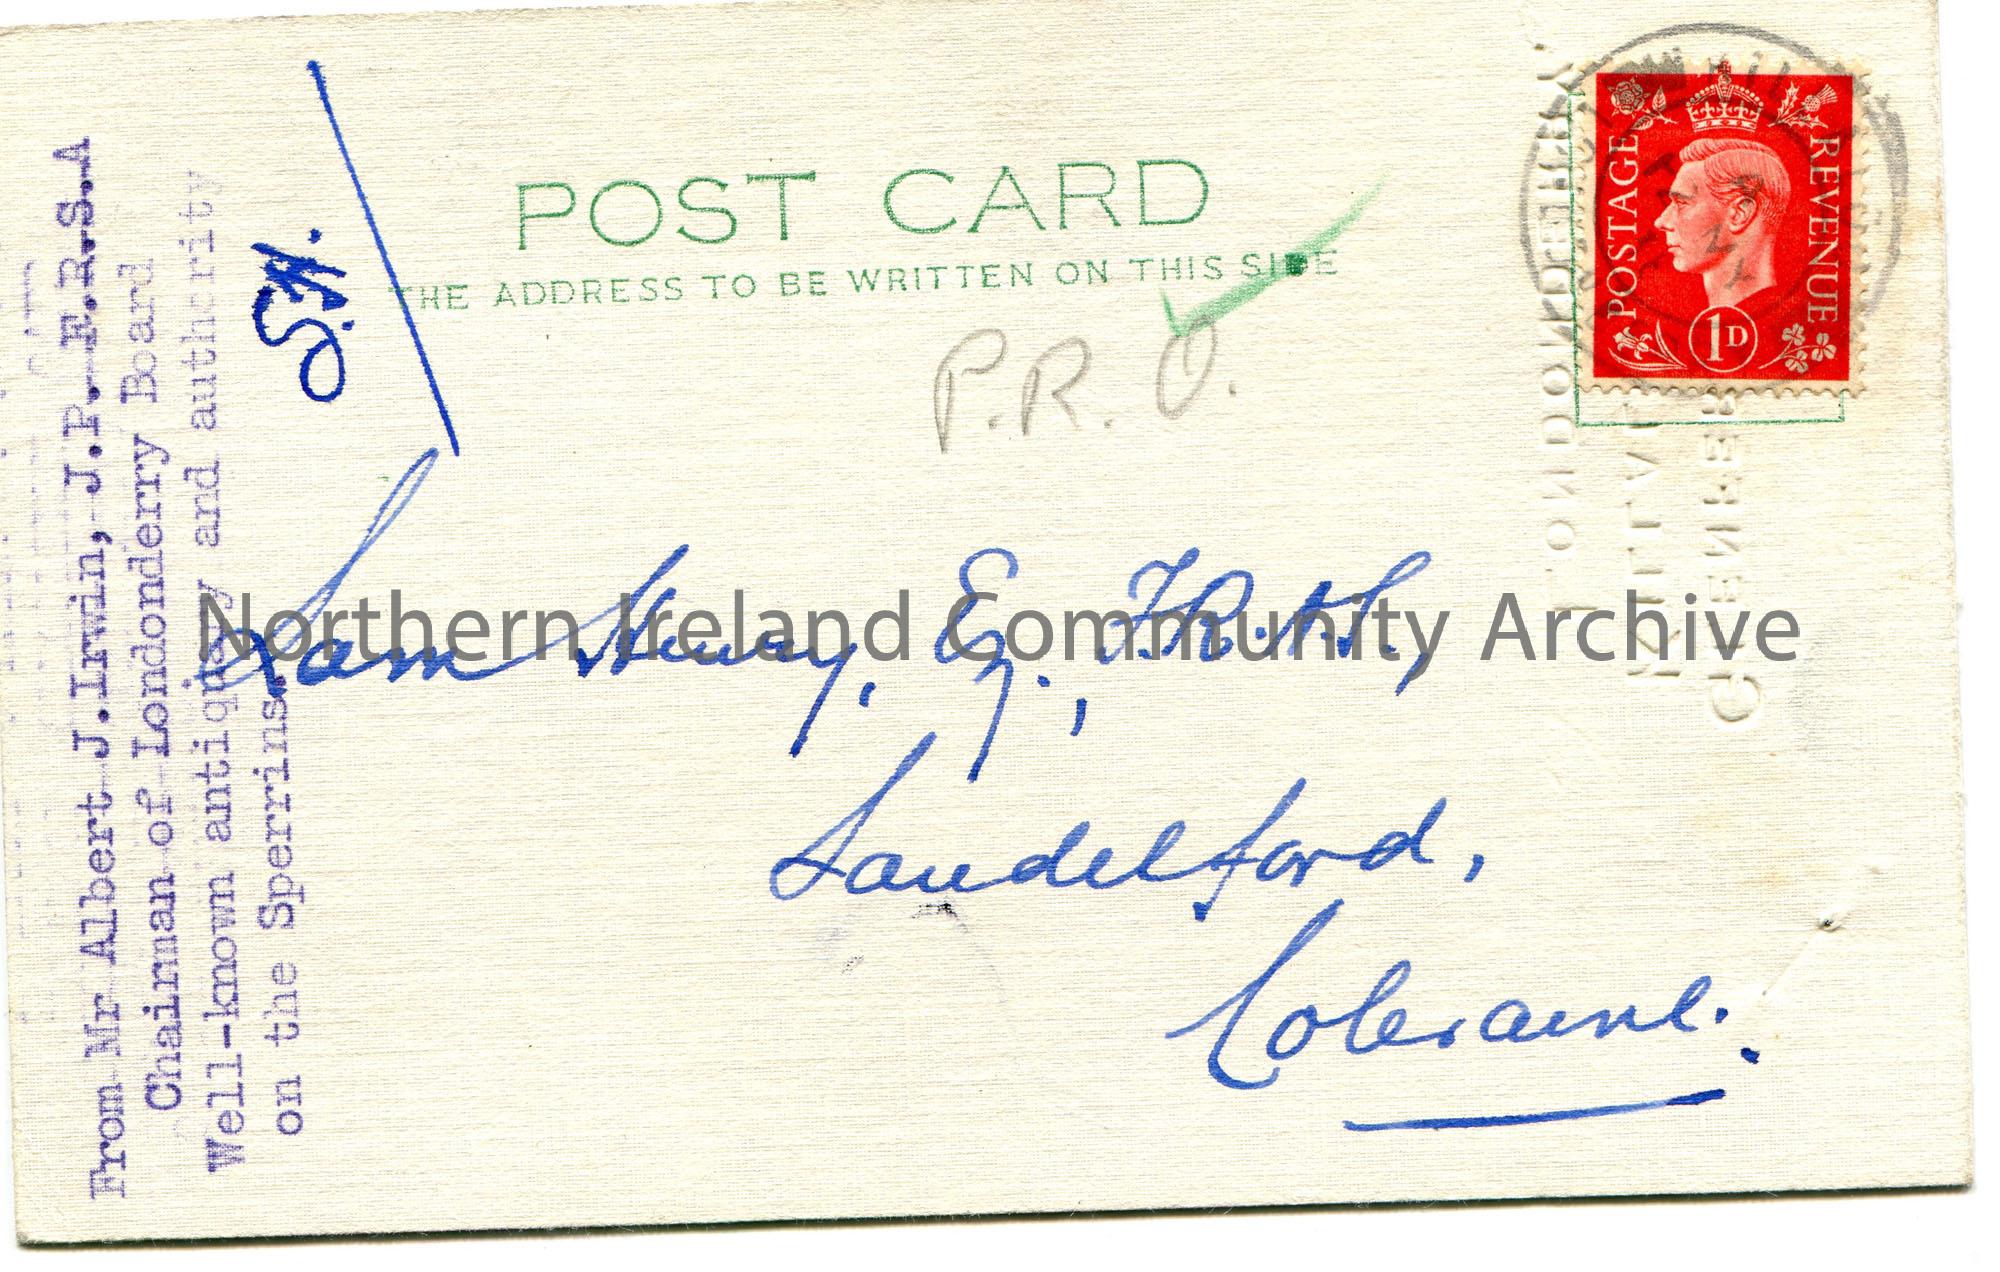 POST CARD
THE ADDRESS TO BE WRITTEN ON THIS SIDE
P.R.O.
S.H.
From Mr Albert J.Irwin, J.P. F.R.S.A
Chairman of Londonderry Board
Well-known antiquary and authority
on the Sperrins.
POSTAGE
REVENUE
1D
Sam Henry, Esq., F.R.A.S.,
Sandelford,
Coleraine.
LONDONDERRY
Northern Ireland Community Archive